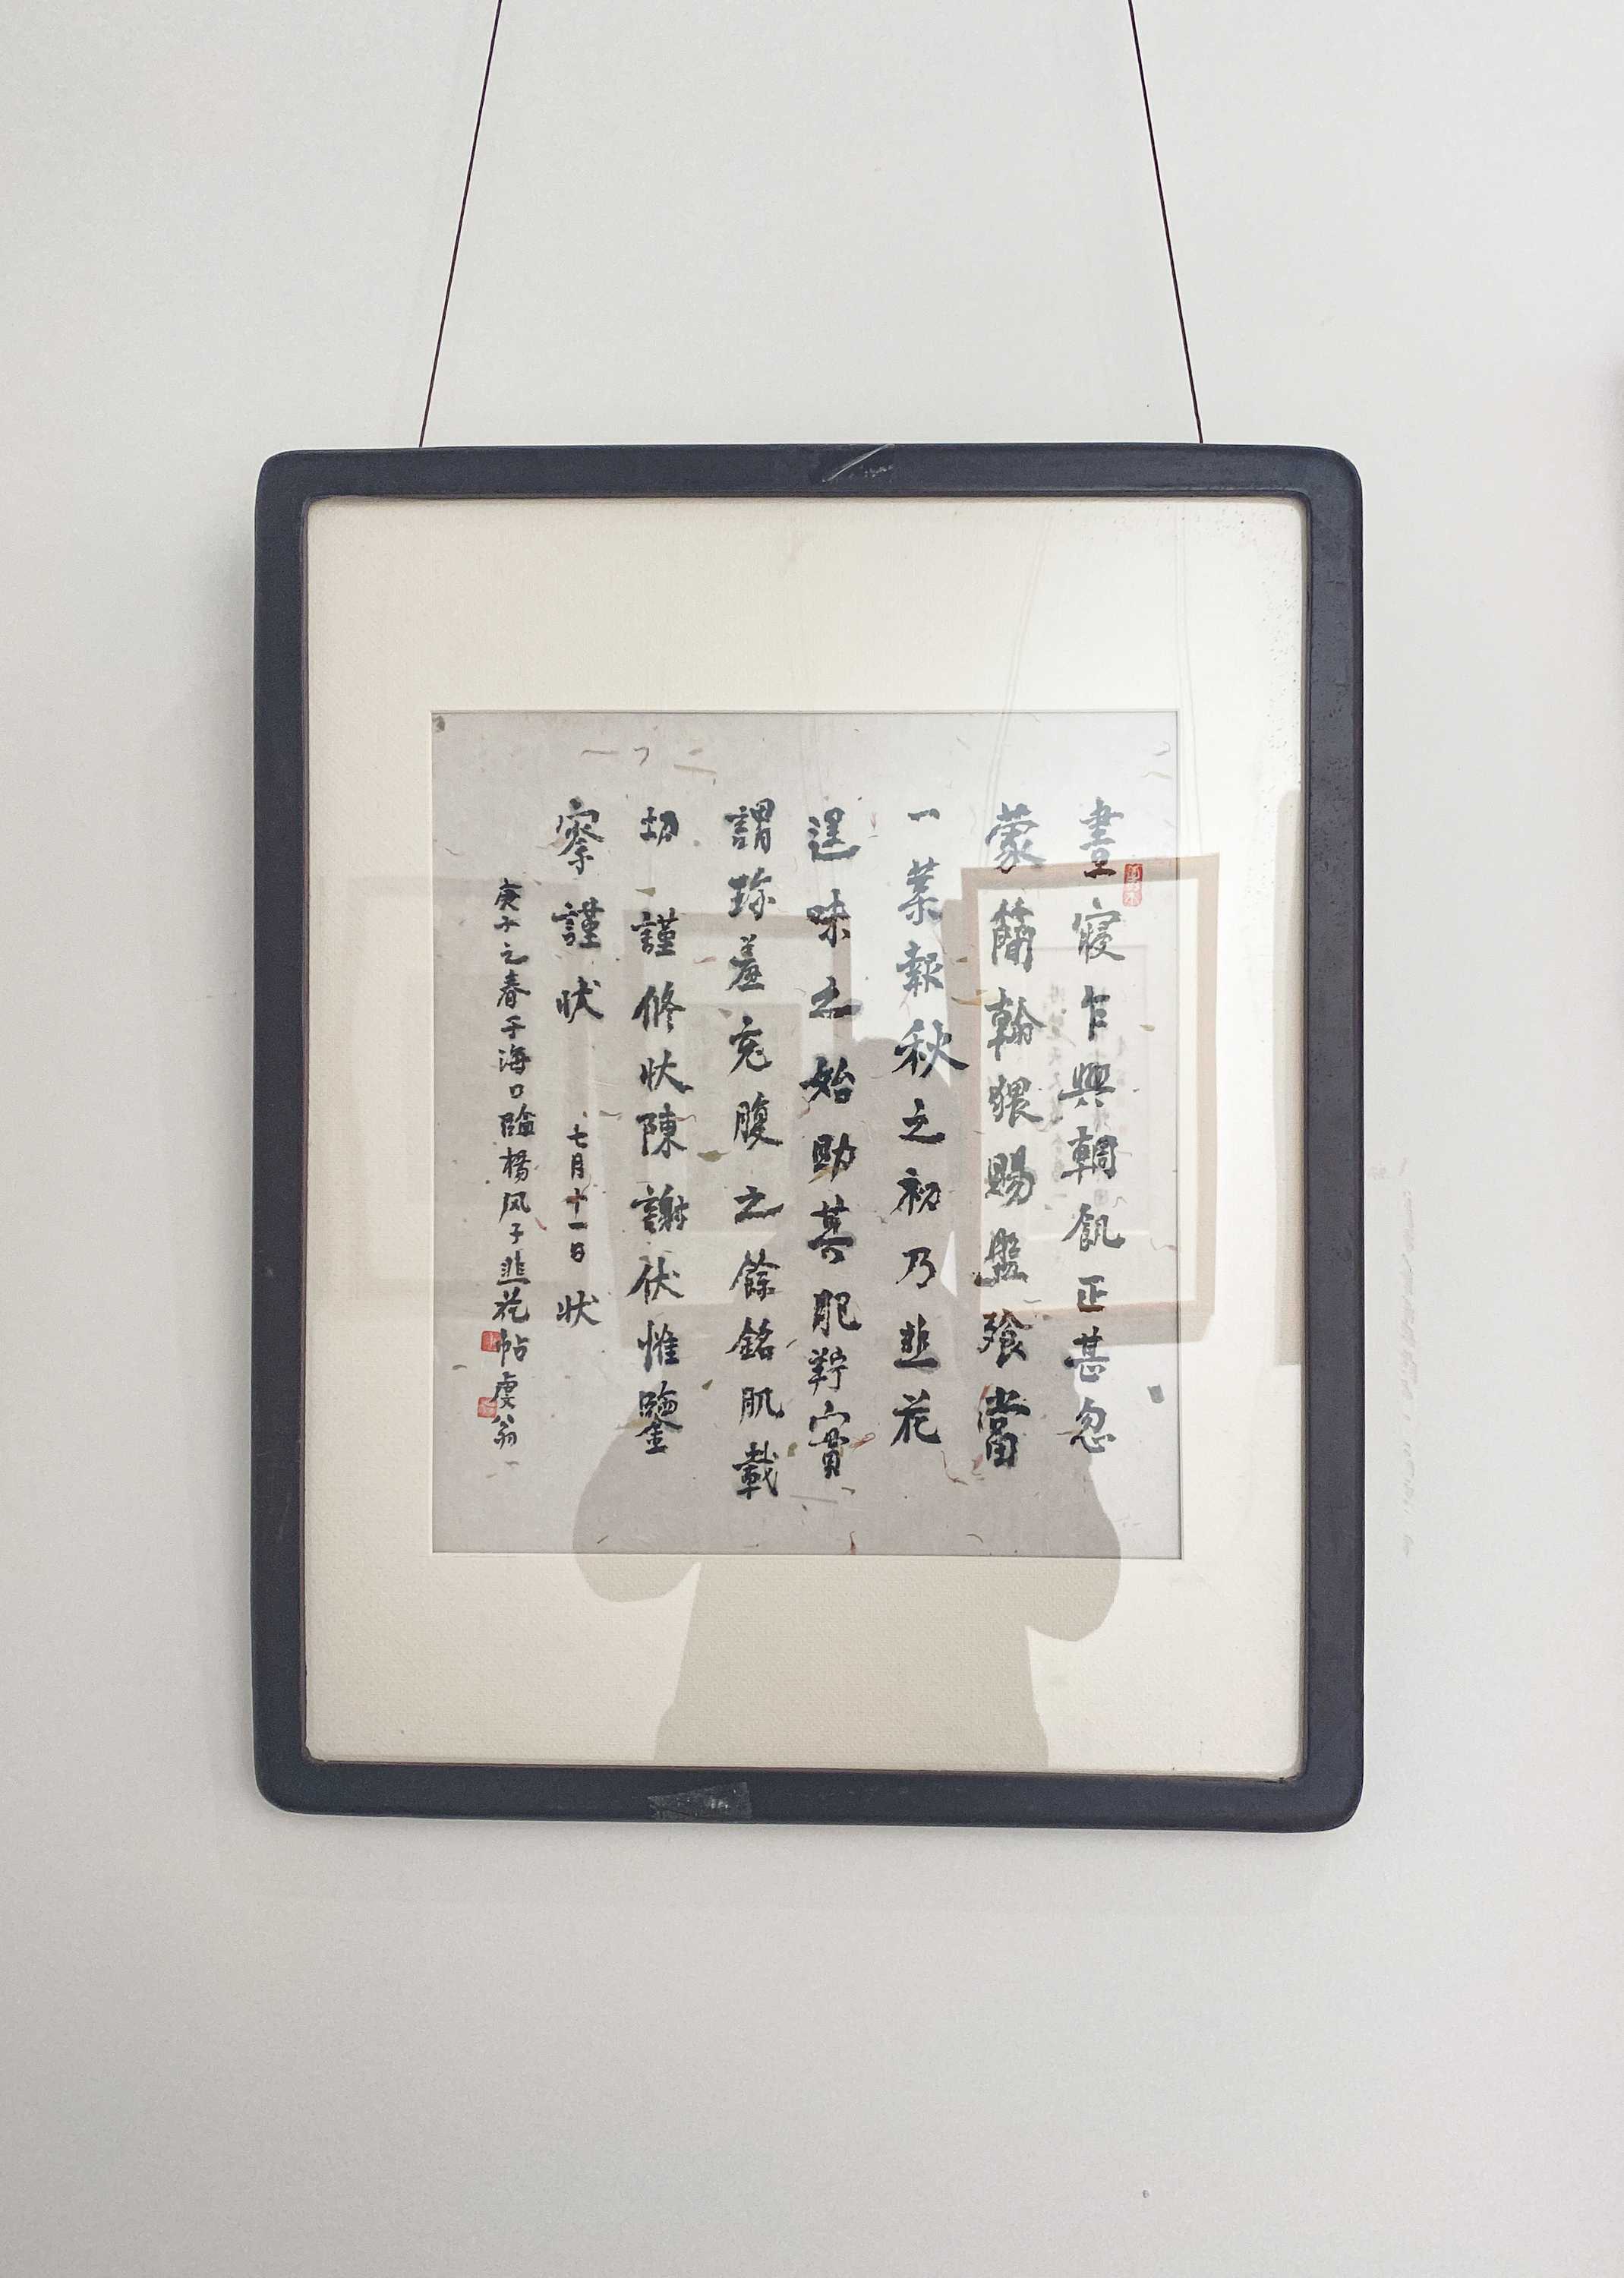 晝寢乍興輖飢正甚忽
蒙簡翰猥賜盤飧當
一葉報秋之初乃韭花
逞味之始助其肥羜實
謂珍羞充腹之餘銘肌載
切謹修狀陳謝伏惟鑒
察謹狀 七月十一日 狀
庚子之春于海口臨楊风子韭花帖虔翁